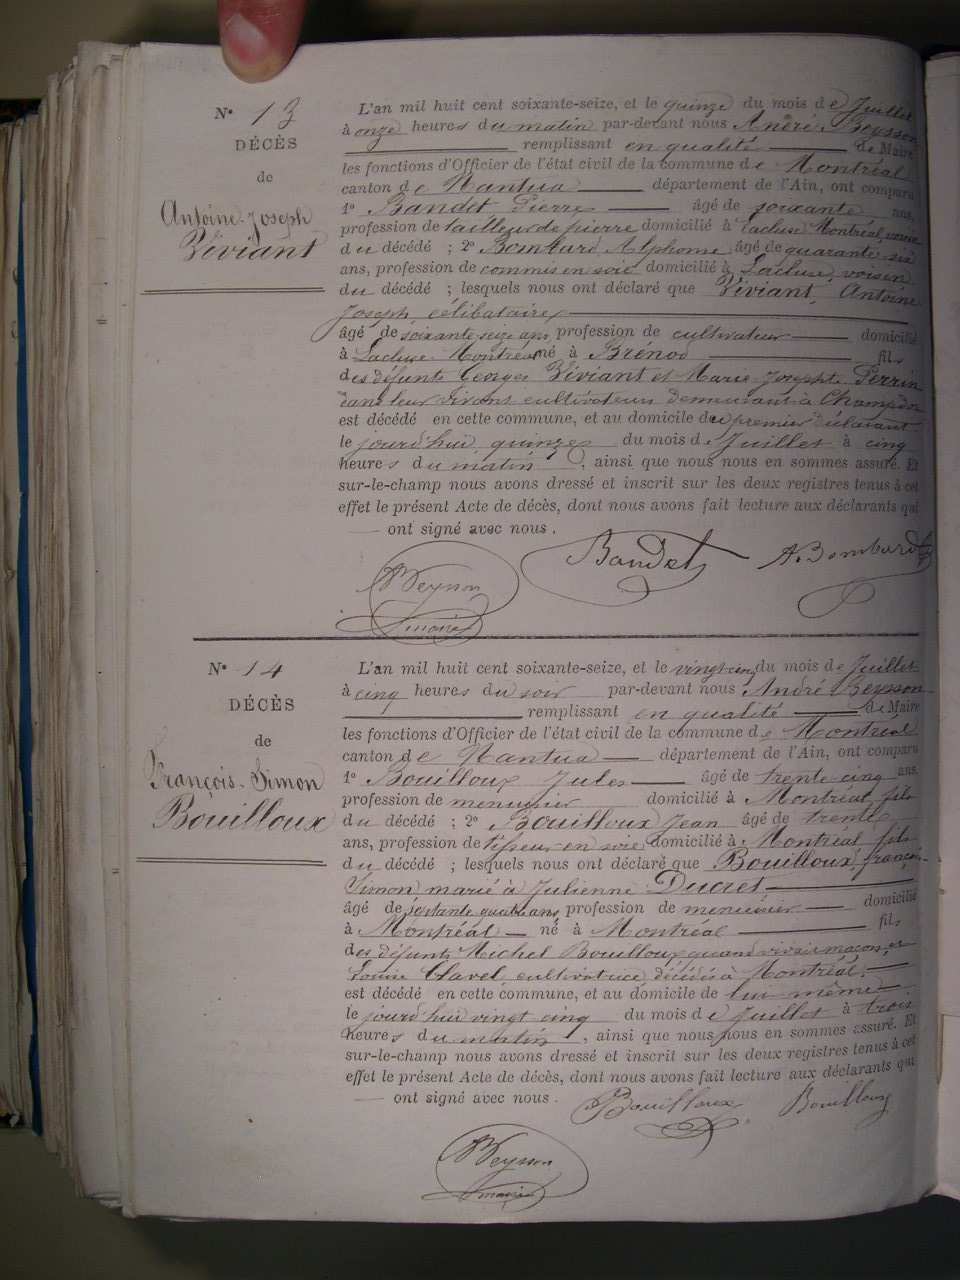 N° 13
DÉCÈS
de
Antoine-Joseph
Viviant
L'an mil huit cent soixante-seize, et le quinze du mois de Juillet
à onze heures du matin par-devant nous André Beysson
remplissant en qualité de Maire
les fonctions d'Officier de l'état civil de la commune de Montréal
canton de Nantua département de l'Ain, ont comparu
1° Baudet Pierre âgé de soixante ans,
profession de tailleur de pierre domicilié à Lacluse Montréal, voisin
du décédé ; 2° Bombard Alphonse âgé de quarante six
ans, profession de commis en soie domicilié à Lacluse, voisin
du décédé ; lesquels nous ont déclaré que Viviant, Antoine
Joseph célibataire
âgé de soixante seize ans, profession de cultivateur domicilié
à Lacluse-Montréal né à Brénod fils
des défunts Georges Viviant et Marie-Josephte Perrin
dans leur vivant cultivateurs demeurant à Champdor
est décédé en cette commune, et au domicile du premier déclarant
le jourd'hui quinze du mois de Juillet à cinq
heures du matin, ainsi que nous nous en sommes assuré. Et
sur-le-champ nous avons dressé et inscrit sur les deux registres tenus à cet
effet le présent Acte de décès, dont nous avons fait lecture aux déclarants qui
ont signé avec nous.
Baudet A. Bombard
Beysson
maire
N° 14
DÉCÈS
de
François-Simon
Bouilloux
L'an mil huit cent soixante-seize, et le vingt cinq du mois de Juillet
à cinq heures du soir par-devant nous André Beysson
remplissant en qualité de Maire
les fonctions d'Officier de l'état civil de la commune de Montréal
canton de Nantua département de l'Ain, ont comparu
1° Bouilloux Jules âgé de trente cinq ans,
profession de menuisier domicilié à Montréal, fils
du décédé ; 2° Bouilloux Jean âgé de trente
ans, profession de tisseur en soie domicilié à Montréal fils
du décédé ; lesquels nous ont déclaré que Bouilloux, françois-
Simon marié à Julienne Ducret
âgé de soixante quatre ans, profession de menuisier domicilié
à Montréal né à Montréal fils
des défunts Michel Bouilloux quand vivait maçon, et
Louise Clavel, cultivatrice, décédés à Montréal,
est décédé en cette commune, et au domicile de lui même
le jourd'hui vingt cinq du mois de Juillet à trois
heures du matin, ainsi que nous nous en sommes assuré. Et
sur-le-champ nous avons dressé et inscrit sur les deux registres tenus à cet
effet le présent Acte de décès, dont nous avons fait lecture aux déclarants qui
ont signé avec nous.
Bouilloux Bouilloux
Beysson
maire